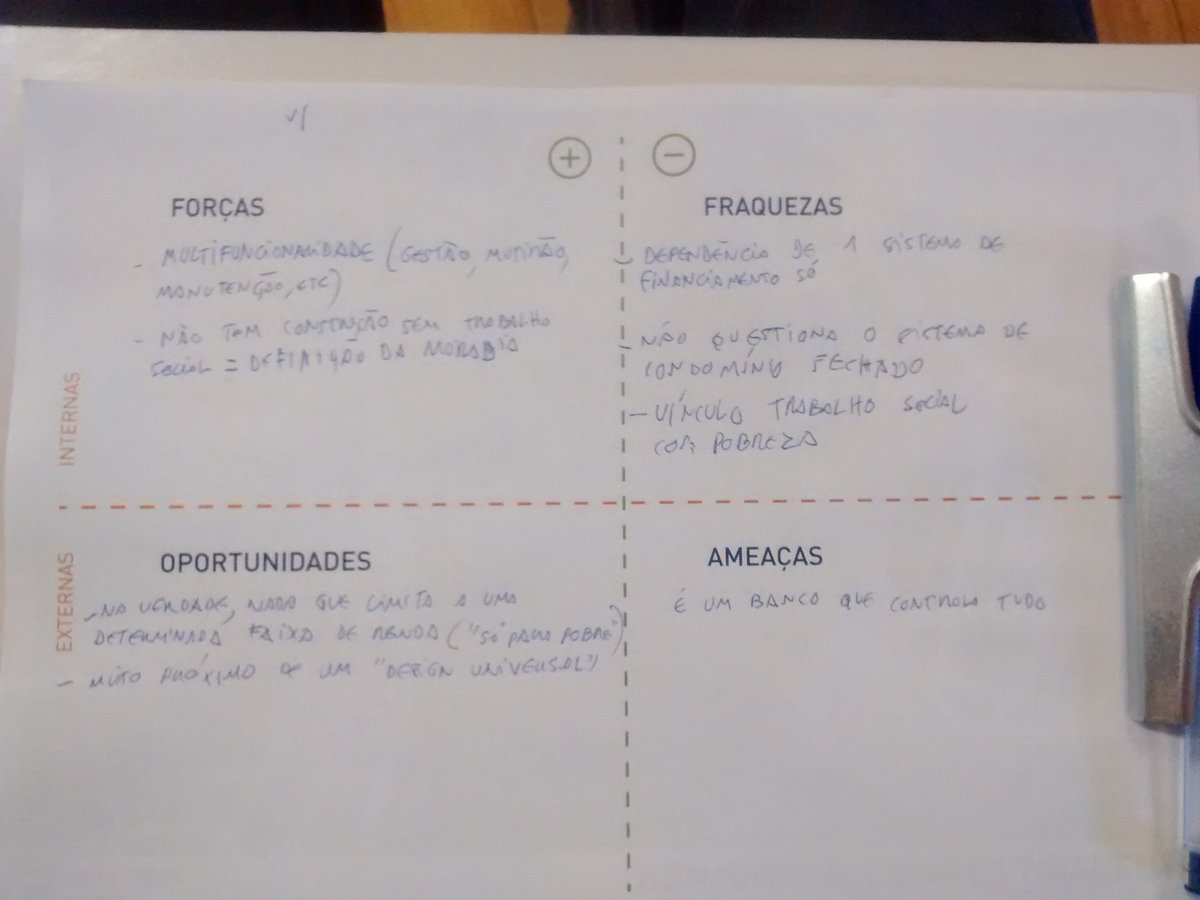 +
−
FORÇAS
- MULTIFUNCIONALIDADE (GESTÃO, MUTIRÃO,
MANUTENÇÃO, ETC)
- NÃO TEM SEM TRABALHO
SOCIAL = DEFINIÇÃO DA MORADIA
FRAQUEZAS
- DEPENDÊNCIA DE 1 SISTEMA DE
FINANCIAMENTO SÓ
- NÃO QUESTIONA O SISTEMA DE
CONDOMÍNIO FECHADO
- VÍNCULO TRABALHO SOCIAL
COM POBREZA
INTERNAS
EXTERNAS
OPORTUNIDADES
- NA VERDADE, NADA QUE LIMITA A UMA
DETERMINADA FAIXA DE RENDA ("SÓ PARA POBRE")
- MUITO PRÓXIMO DE UM "DESIGN UNIVERSAL"
AMEAÇAS
É UM BANCO QUE CONTROLA TUDO